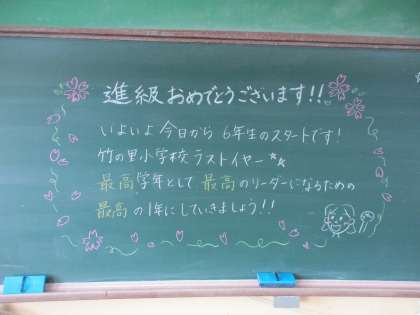 進級おめでとうございます!!
いよいよ今日から6年生のスタートです!
竹の里小学校ラストイヤー**
最高学年として最高のリーダーになるための
最高の1年にしていきましょう!!